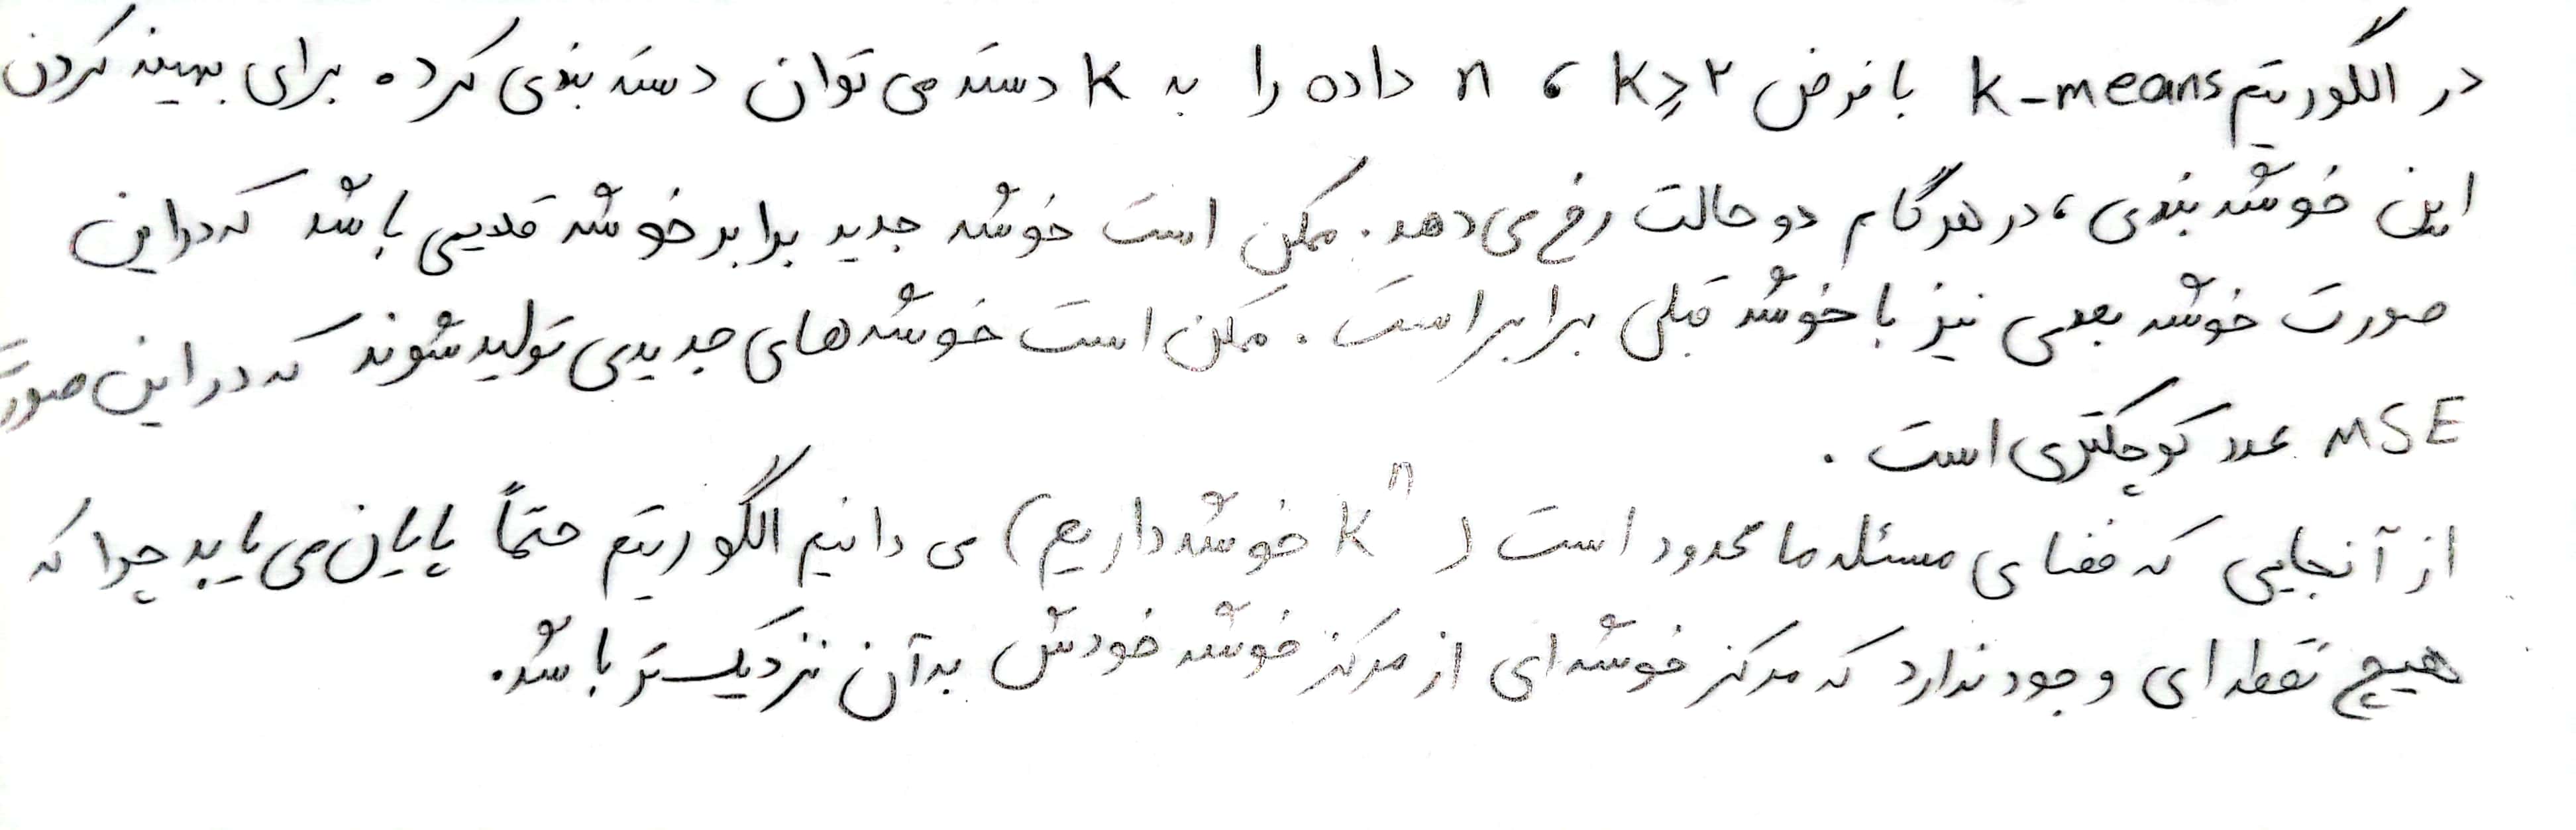 در الگوریتم k-means با فرض k≥۲ ، n داده را به k دسته می توان دسته بندی کرد. برای بهینه کردن
این خوشه بندی، در هر گام دو حالت رخ می دهد. ممکن است خوشه جدید برابر خوشه قدیمی باشد که در این
صورت خوشه بعدی نیز با خوشه قبلی برابر است. ممکن است خوشه های جدیدی تولید شوند که در این صورت
MSE عدد کوچکتری است.
از آنجایی که فضای مسئله ما محدود است (kⁿ خوشه داریم) می دانیم الگوریتم حتماً پایان می یابد چرا که
هیچ نقطه ای وجود ندارد که مرکز خوشه ای از مرکز خوشه خودش به آن نزدیک تر باشد.